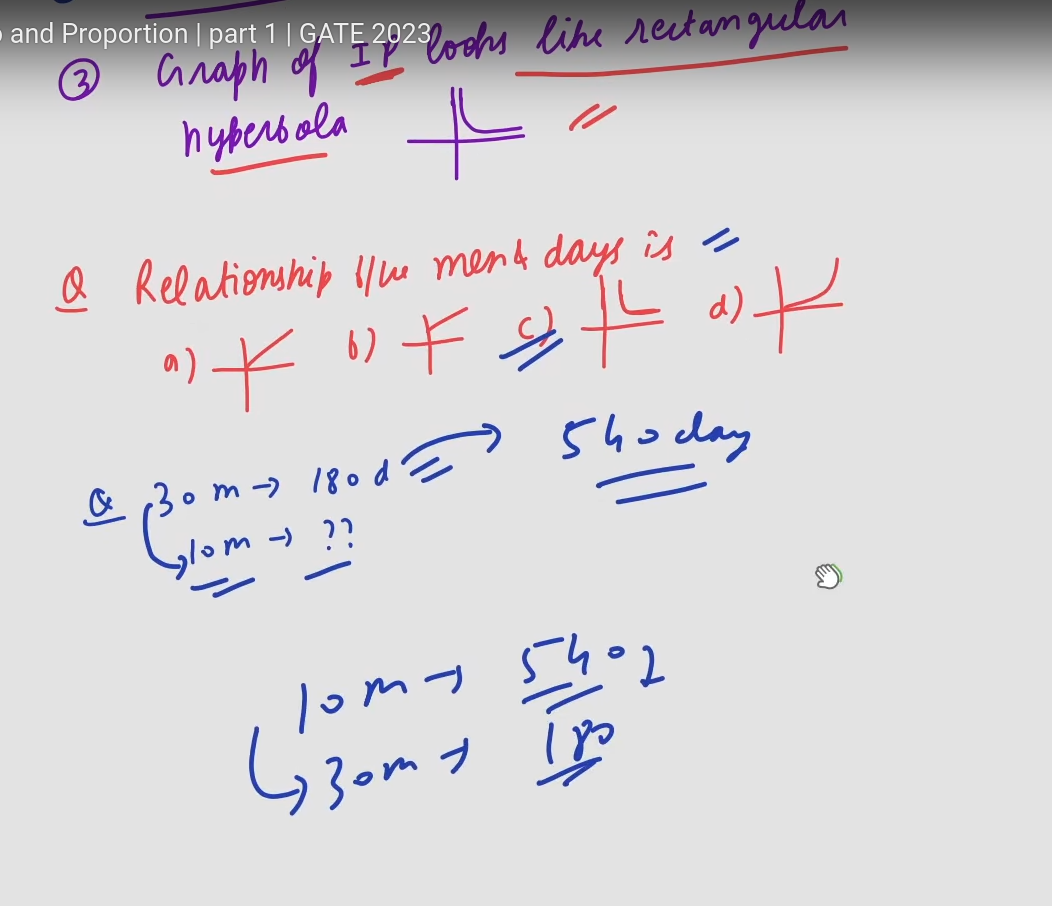 and Proportion | part 1 | GATE 2023
③ Graph of IP looks like rectangular
hyperbola
Q Relationship b/w men & days is
a) b) c) d)
Q 30 m → 180 d → 540 day
10 m → ??
10 m → 540
30 m → 180